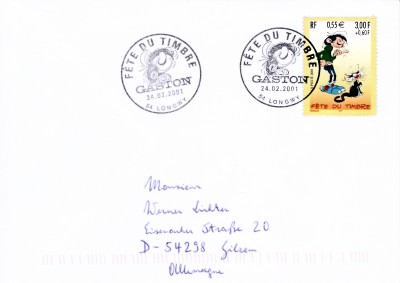 FÊTE DU TIMBRE
GASTON
24.02.2001
54 LONGWY
FÊTE DU TIMBRE
GASTON
24.02.2001
54 LONGWY
RF 0,55€ 3,00F
+0,60F
FÊTE DU TIMBRE
Monsieur
Werner
Straße 20
D-54298 Gilzem
Allemagne